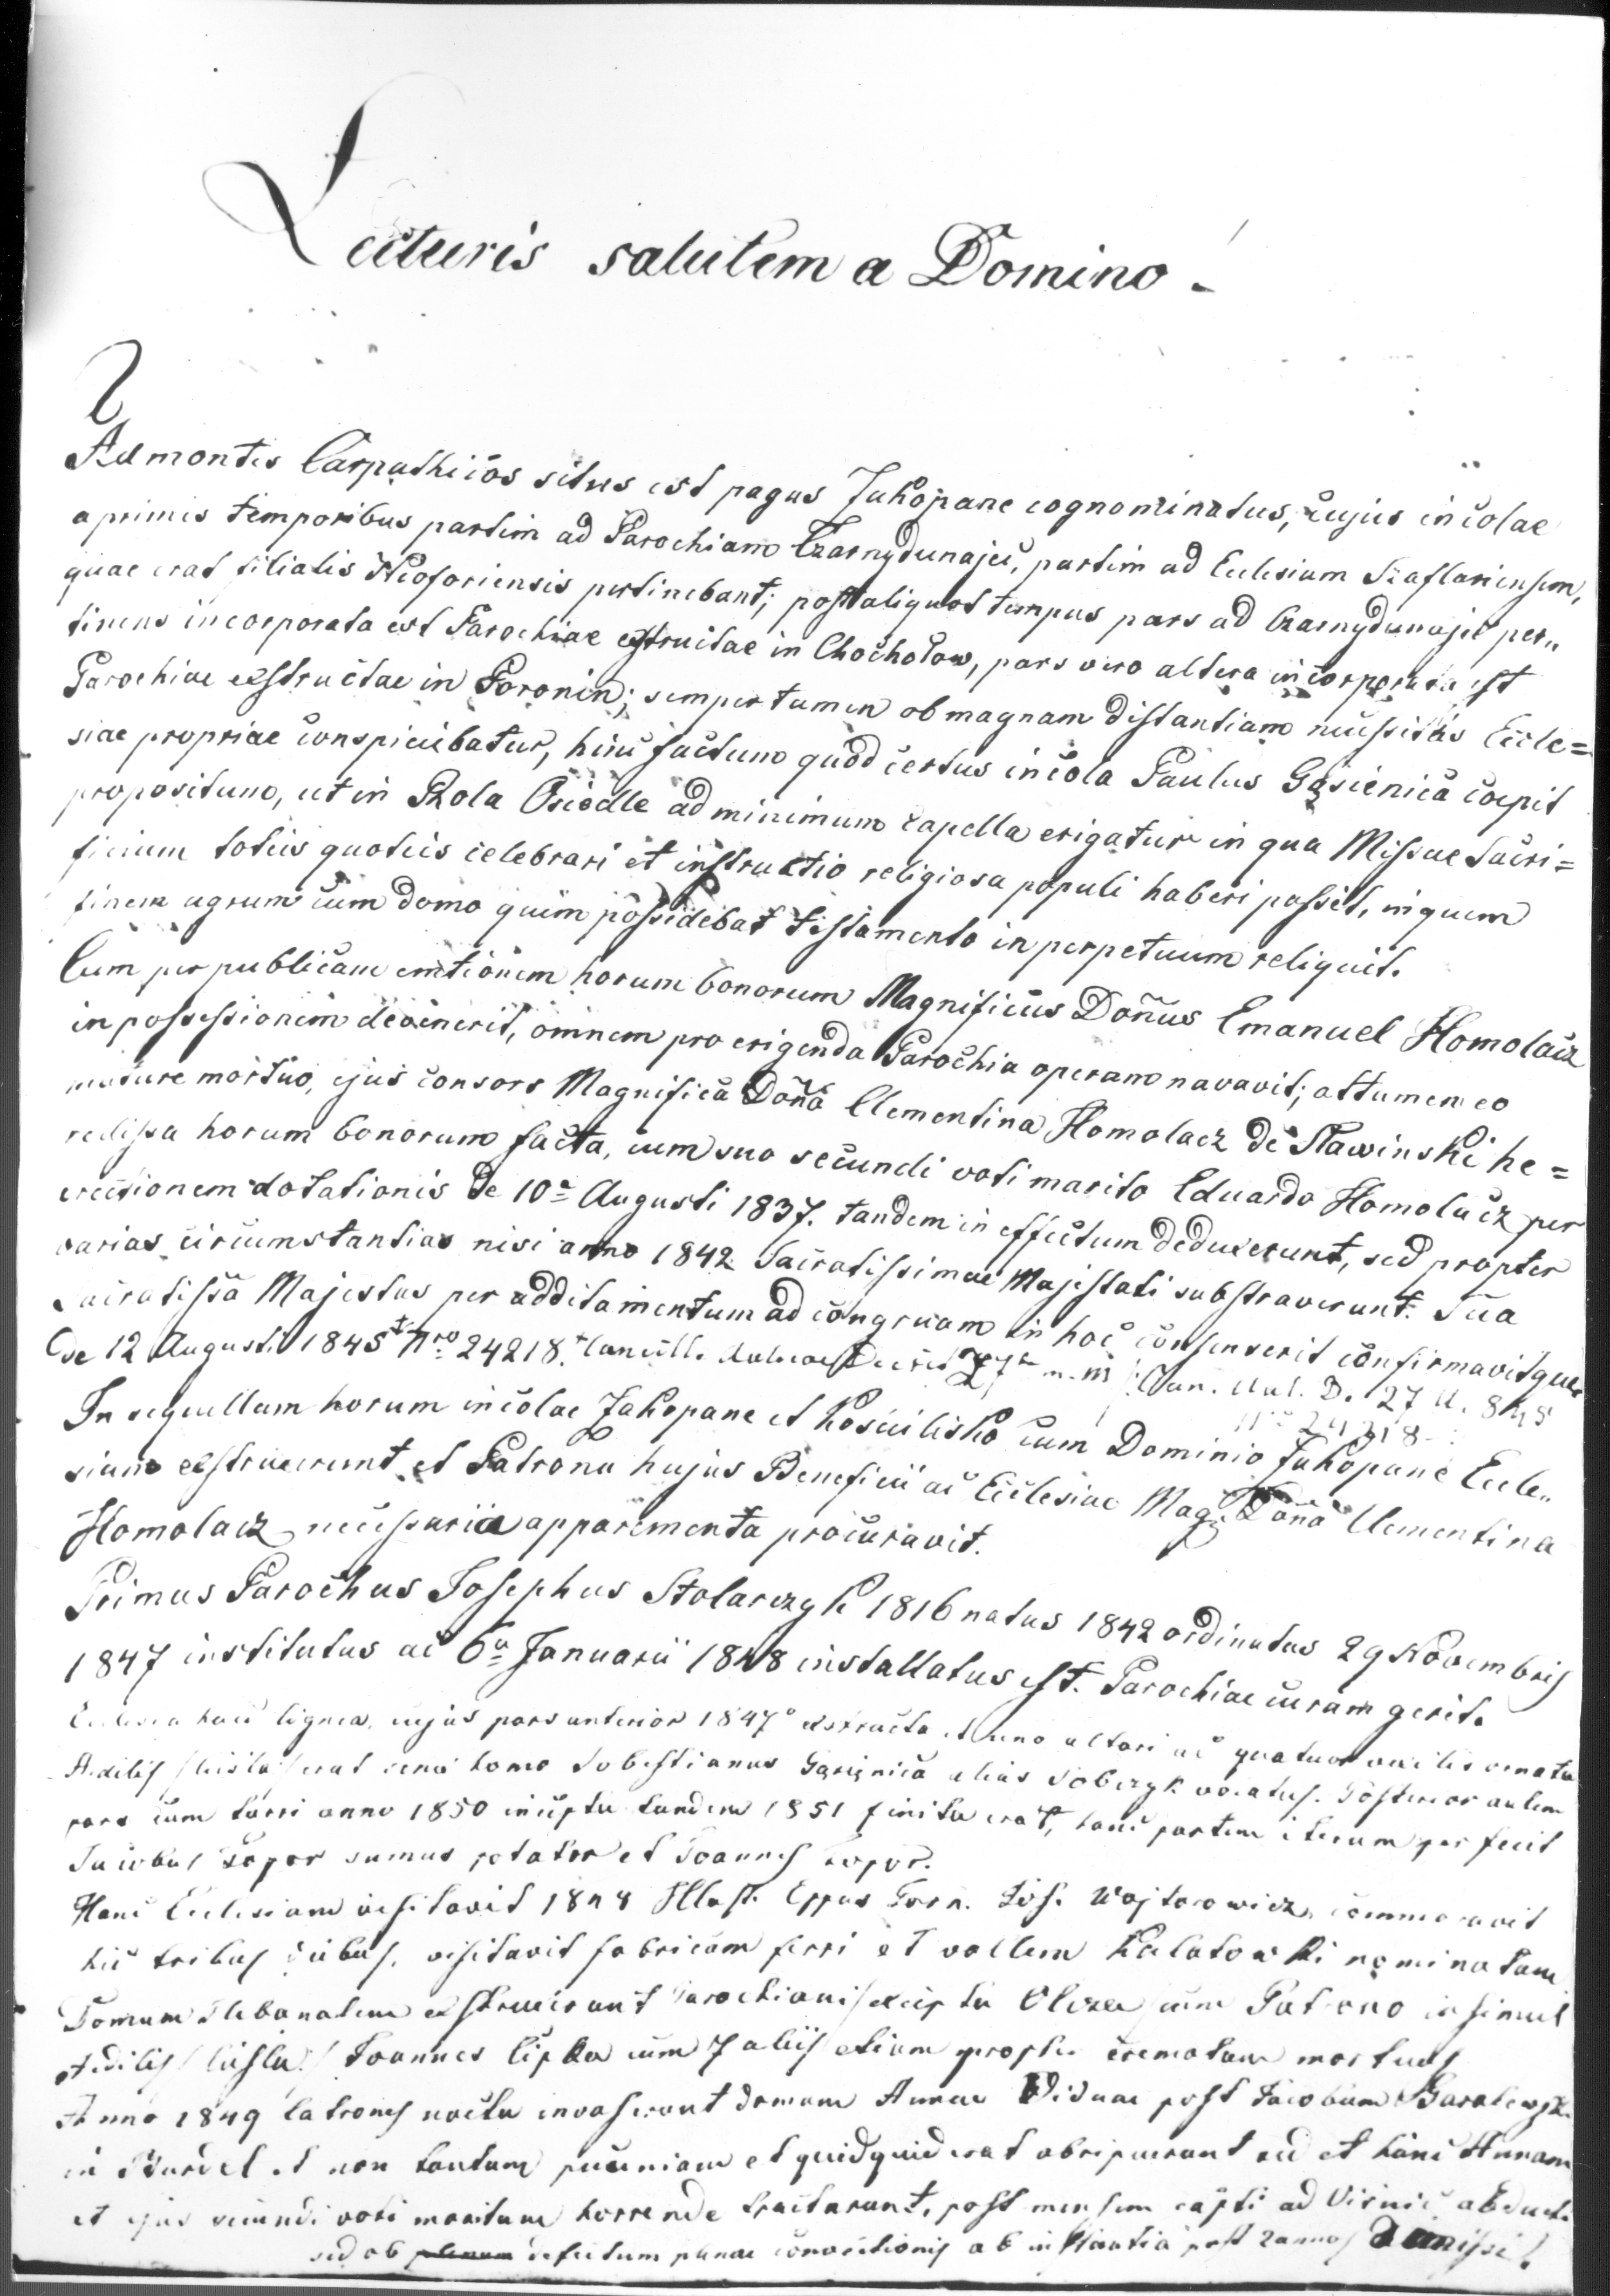 Lecturis salutem a Domino.
Ad montes Carpathicos situs est pagus Zakopane cognominatus, cujus incolae
a primis temporibus partim ad Parochiam Czarnydunajec, partim ad Ecclesiam Szaflariensem,
quae erat filialis Neoforiensis pertinebant; post aliquot tempus pars ad Czarnydunajec per„
tinens incorporata est Parochiae exstructae in Chochołow, pars vero altera incorporata est
Parochiae exstructae in Poronin; semper tamen ob magnam distantiam necessitas Eccle=
siae propriae conspiciebatur, hinc factum quod certus incola Paulus Gąsienica coepit
propositum, ut in Rola Osiedle ad minimum capella erigatur in qua Missae Sacri=
ficium toties quoties celebrari et instructio religiosa populi haberi posset, in quem
finem agrum cum domo quem possidebat testamento in perpetuum reliquit.
Cum per publicam emtionem horum bonorum Magnificus Doñus Emanuel Homolacz
in possessionem devenerit, omnem pro erigenda Parochia operam navavit; attamen eo
mature mortuo, ejus consors Magnifica Doña Clementina Homolacz de Sławinski he=
redissa horum bonorum facta, cum suo secundi voti marito Eduardo Homolacz per
erectionem dotationis de 10a Augusti 1837. tandem in effectum deduxerunt, sed propter
varias circumstantias nisi anno 1842 Sacratissimae Majestati substraverunt. Sua
Sacratissa Majestas per additamentum ad congruam in hoc consenserit confirmavitque
de 12 Augusti 1845 Nro 24218. Cancell. Aulicae Decret 27 Can. Aul. D. 27 A. 845
Nro 24218
In sequellam horum incolae Zakopane et Koscielisko cum Dominio Zakopane Eccle„
siam exstruxerunt et Patrona hujus Beneficii ac Ecclesiae Mag. Doña Clementina
Homolacz necessaria apparementa procuravit.
Primus Parochus Josephus Stolarczyk 1816 natus 1842 ordinatus 29 Novembris
1847 institutus ac 6a Januarii 1848 installatus est. Parochiae curam gerit.
Ecclesia haec lignea, cujus pars anterior 1847o exstructa et uno altari ac quatuor ornata
Aedilis /cieśla/ erat homo Sobestianus Gąsienica alias Sobczyk vocatus. Posterior autem
pars cum turri anno 1850 incepta tandem 1851 finita erat, hanc partem iterum perfecit
Jacobus Topor sumus potator et Joannes Topor.
Hanc Ecclesiam visitavit 1848 Illust. Eppus Tarn. Jos. Wojtarowicz, commoravit
hic tribus diebus, visitavit fabricam ferri et vallem Kalatowki nominatam
Domum Plebanalem exstruxerunt Parochiani /excepta Olcza/ cum Patrono insimul
Aedilis /cieśla/ Joannes cum 7 aliis etiam propter crematum mortuus
Anno 1849 latrones noctu invaserunt domum Annae Viduae post Jacobum
in et non tantum pecuniam et quidquid erat abripuerunt sed et hanc Annam
et ejus secundi voti maritum horrende tractarunt, post mensem capti ad Visnic abducti
sed ob defectum plenae convictionis ab instantia post 2 annos dimissi.